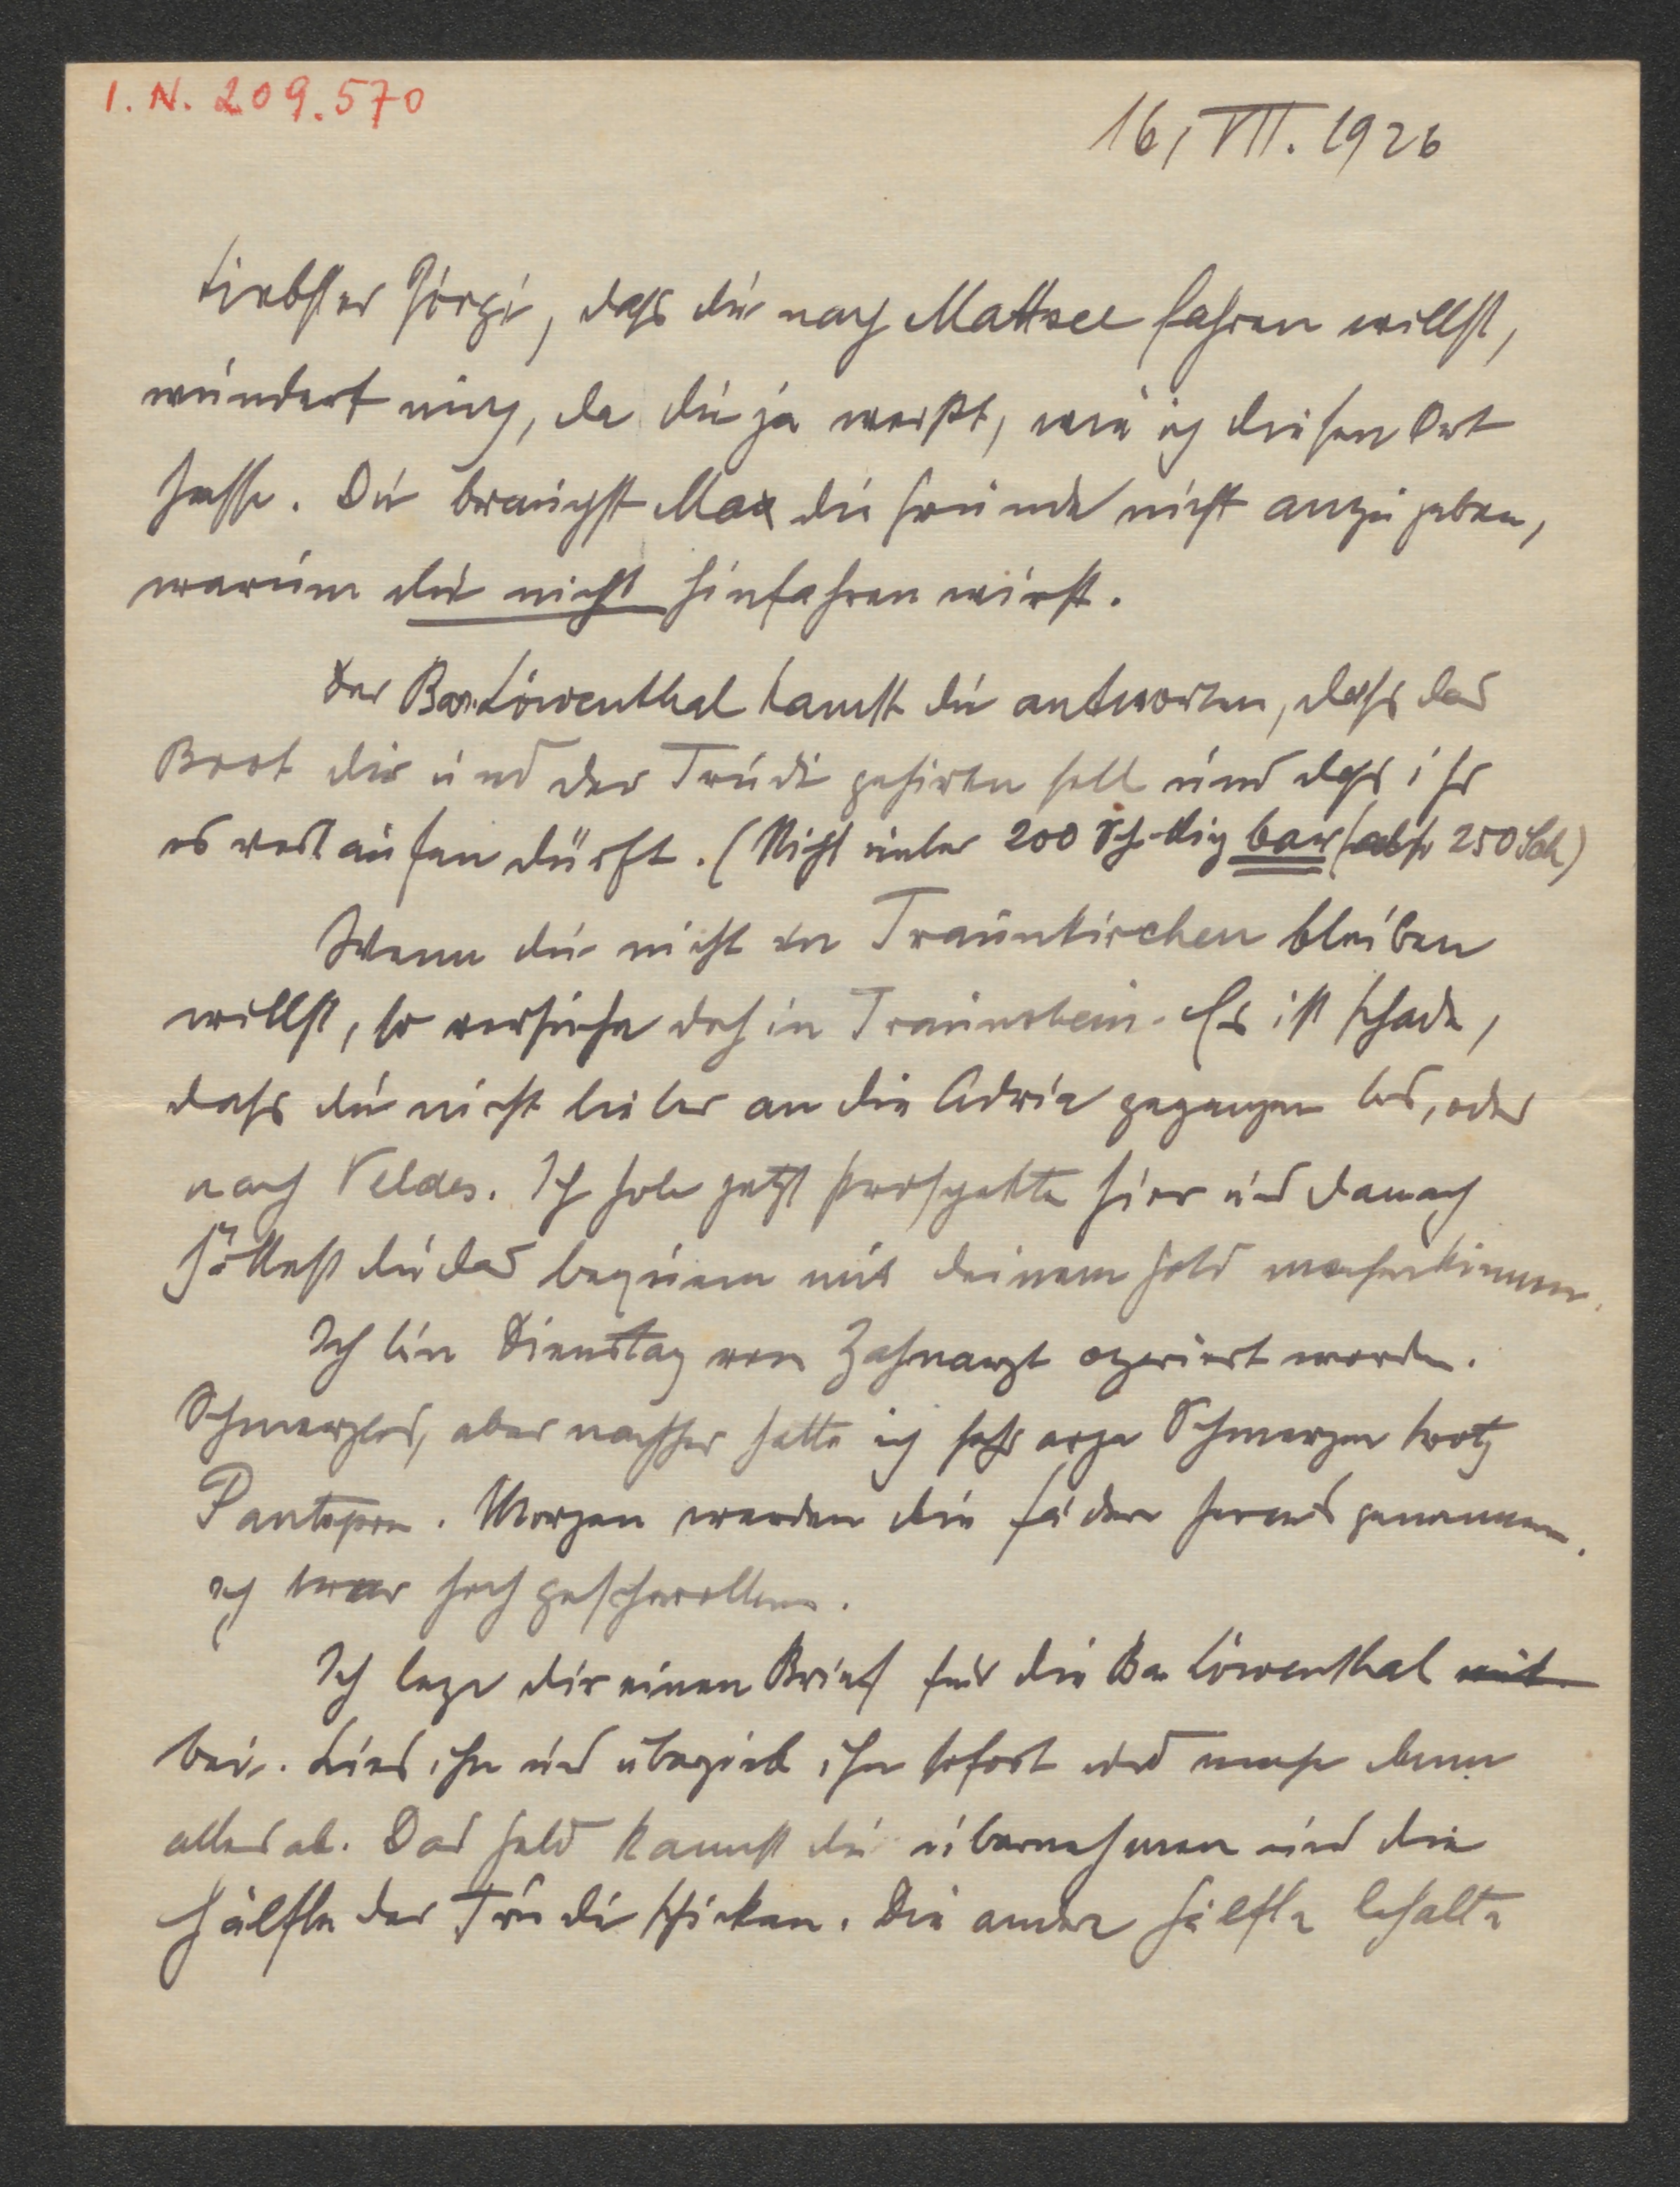 I. N. 209.570
16/VII. 1926
Liebster Görgi, dass du nach Mattsee fahren willst,
wundert mich, da du ja weißt, wie ich diesen Ort
hasse. Du brauchst Max die Gründe nicht anzugeben,
warum du nicht hinfahren wirst.
Der Bar. Löwenthal kannst du antworten, dass das
Boot dir und der Trudi gehören soll und dass ihr
es verkaufen dürft. (Nicht unter 200 Schillig bar (also 250 Sch)
Wenn du nicht in Traunkirchen bleiben
willst, so versuche doch in Traunstein. Es ist schade,
dass du nicht lieber an die Adria gegangen bist, oder
nach Veldes. Ich habe jetzt Prospekte hier und danach
hättest du das bequem mit deinem Geld machen können.
Ich bin Dienstag vom Zahnarzt operiert worden.
Schmerzlos, aber nachher hatte ich sehr arge Schmerzen trotz
Pantopon. Morgen werden die Fäden herausgenommen.
Ich war hoch geschwollen.
Ich lege dir einen Brief für die Bar Löwenthal mit
bei. Lies ihn und übergieb ihn sofort und mache dann
alles ab. Das Geld kannst du übernehmen und die
Hälfte der Trudi schicken. Die andere Hälfte behalte